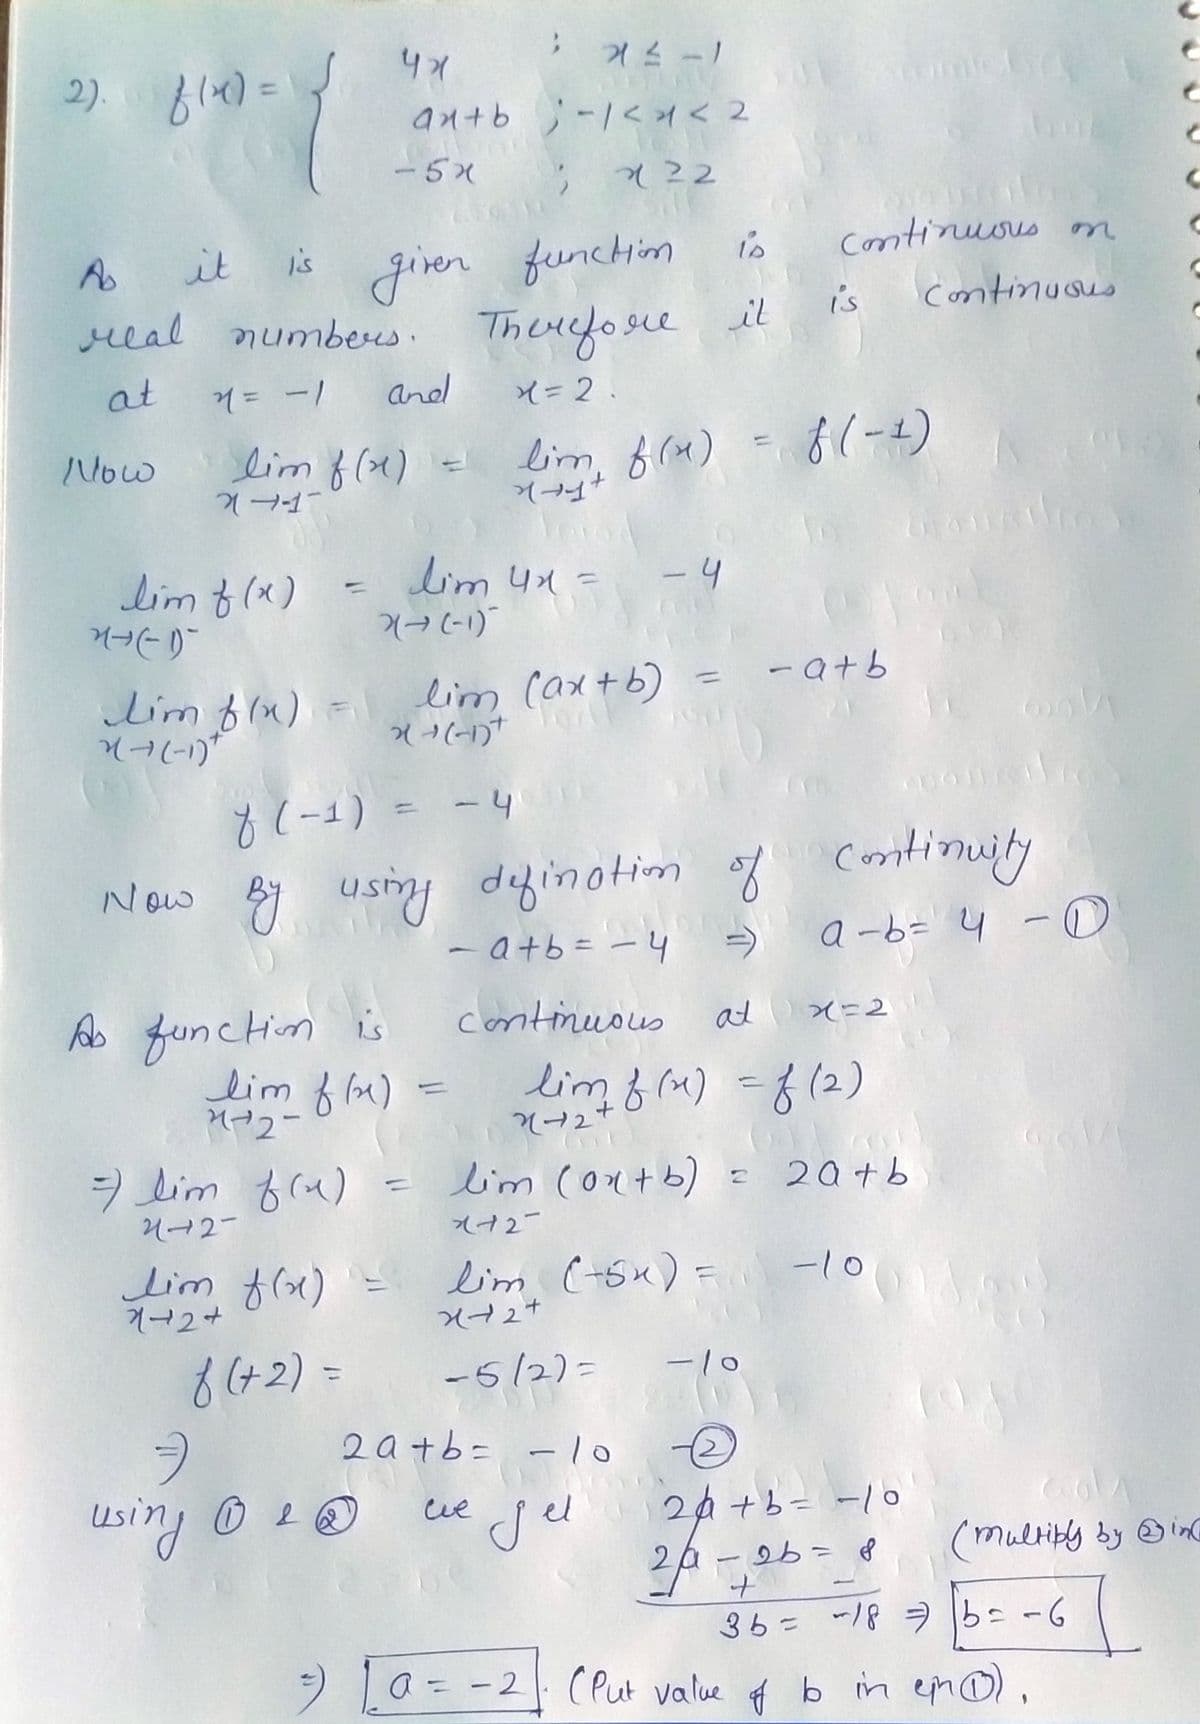 2). f(x) = { 4x ; x ≤ -1
ax+b ; -1 < x < 2
-5x ; x ≥ 2
As it is given function is continuous on
real numbers. Therefore it is continuous
at x = -1 and x = 2.
Now lim f(x) = lim f(x) = f(-1)
x→-1⁻ x→-1⁺
lim f(x) = lim 4x = -4
x→(-1)⁻ x→(-1)⁻
lim f(x) = lim (ax+b) = -a+b
x→(-1)⁺ x→(-1)⁺
f(-1) = -4
Now By using definotion of continuity
-a+b = -4 ⇒ a-b = 4 - ①
As function is continuous at x=2
lim f(x) = lim f(x) = f(2)
x→2⁻ x→2⁺
⇒ lim f(x) = lim (ax+b) = 2a+b
x→2⁻ x→2⁻
lim f(x) = lim (-5x) = -10
x→2+ x→2⁺
f(+2) = -5(2) = -10
⇒ 2a+b = -10 -②
using ① & ② we get 2a+b = -10
2a - 2b = 8 (multiply by ② in
- + -
3b = -18 ⇒ b = -6
⇒ a = -2. (Put value of b in eqn ①).